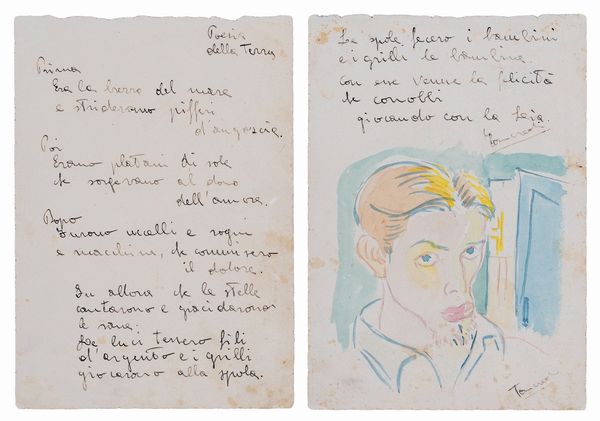 Poesia
della Terra
Prima
Era la brezza del mare
e stridevano pifferi
d'angoscia.
Poi
Erano platani di sole
che sorgevano al dono
dell'amore.
Dopo
Furono uccelli e sogni
e macchine, che commisero
il dolore.
Fu allora che le stelle
cantarono e gracidarono
le rane;
Le luci tessero fili
d'argento e i grilli
giocarono alla spola.
Le spole fecero i bambini
e i grilli le bambine.
con esse venne la felicità
che conobbi
giocando con la
Tancredi
Tancredi